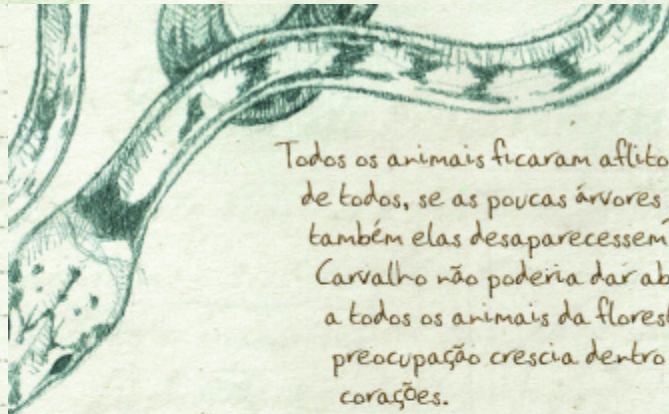 Todos os animais ficaram aflito
de todos, se as poucas árvores
também elas desaparecessem
Carvalho não poderia dar ab
a todos os animais da florest
preocupação crescia dentro
corações.